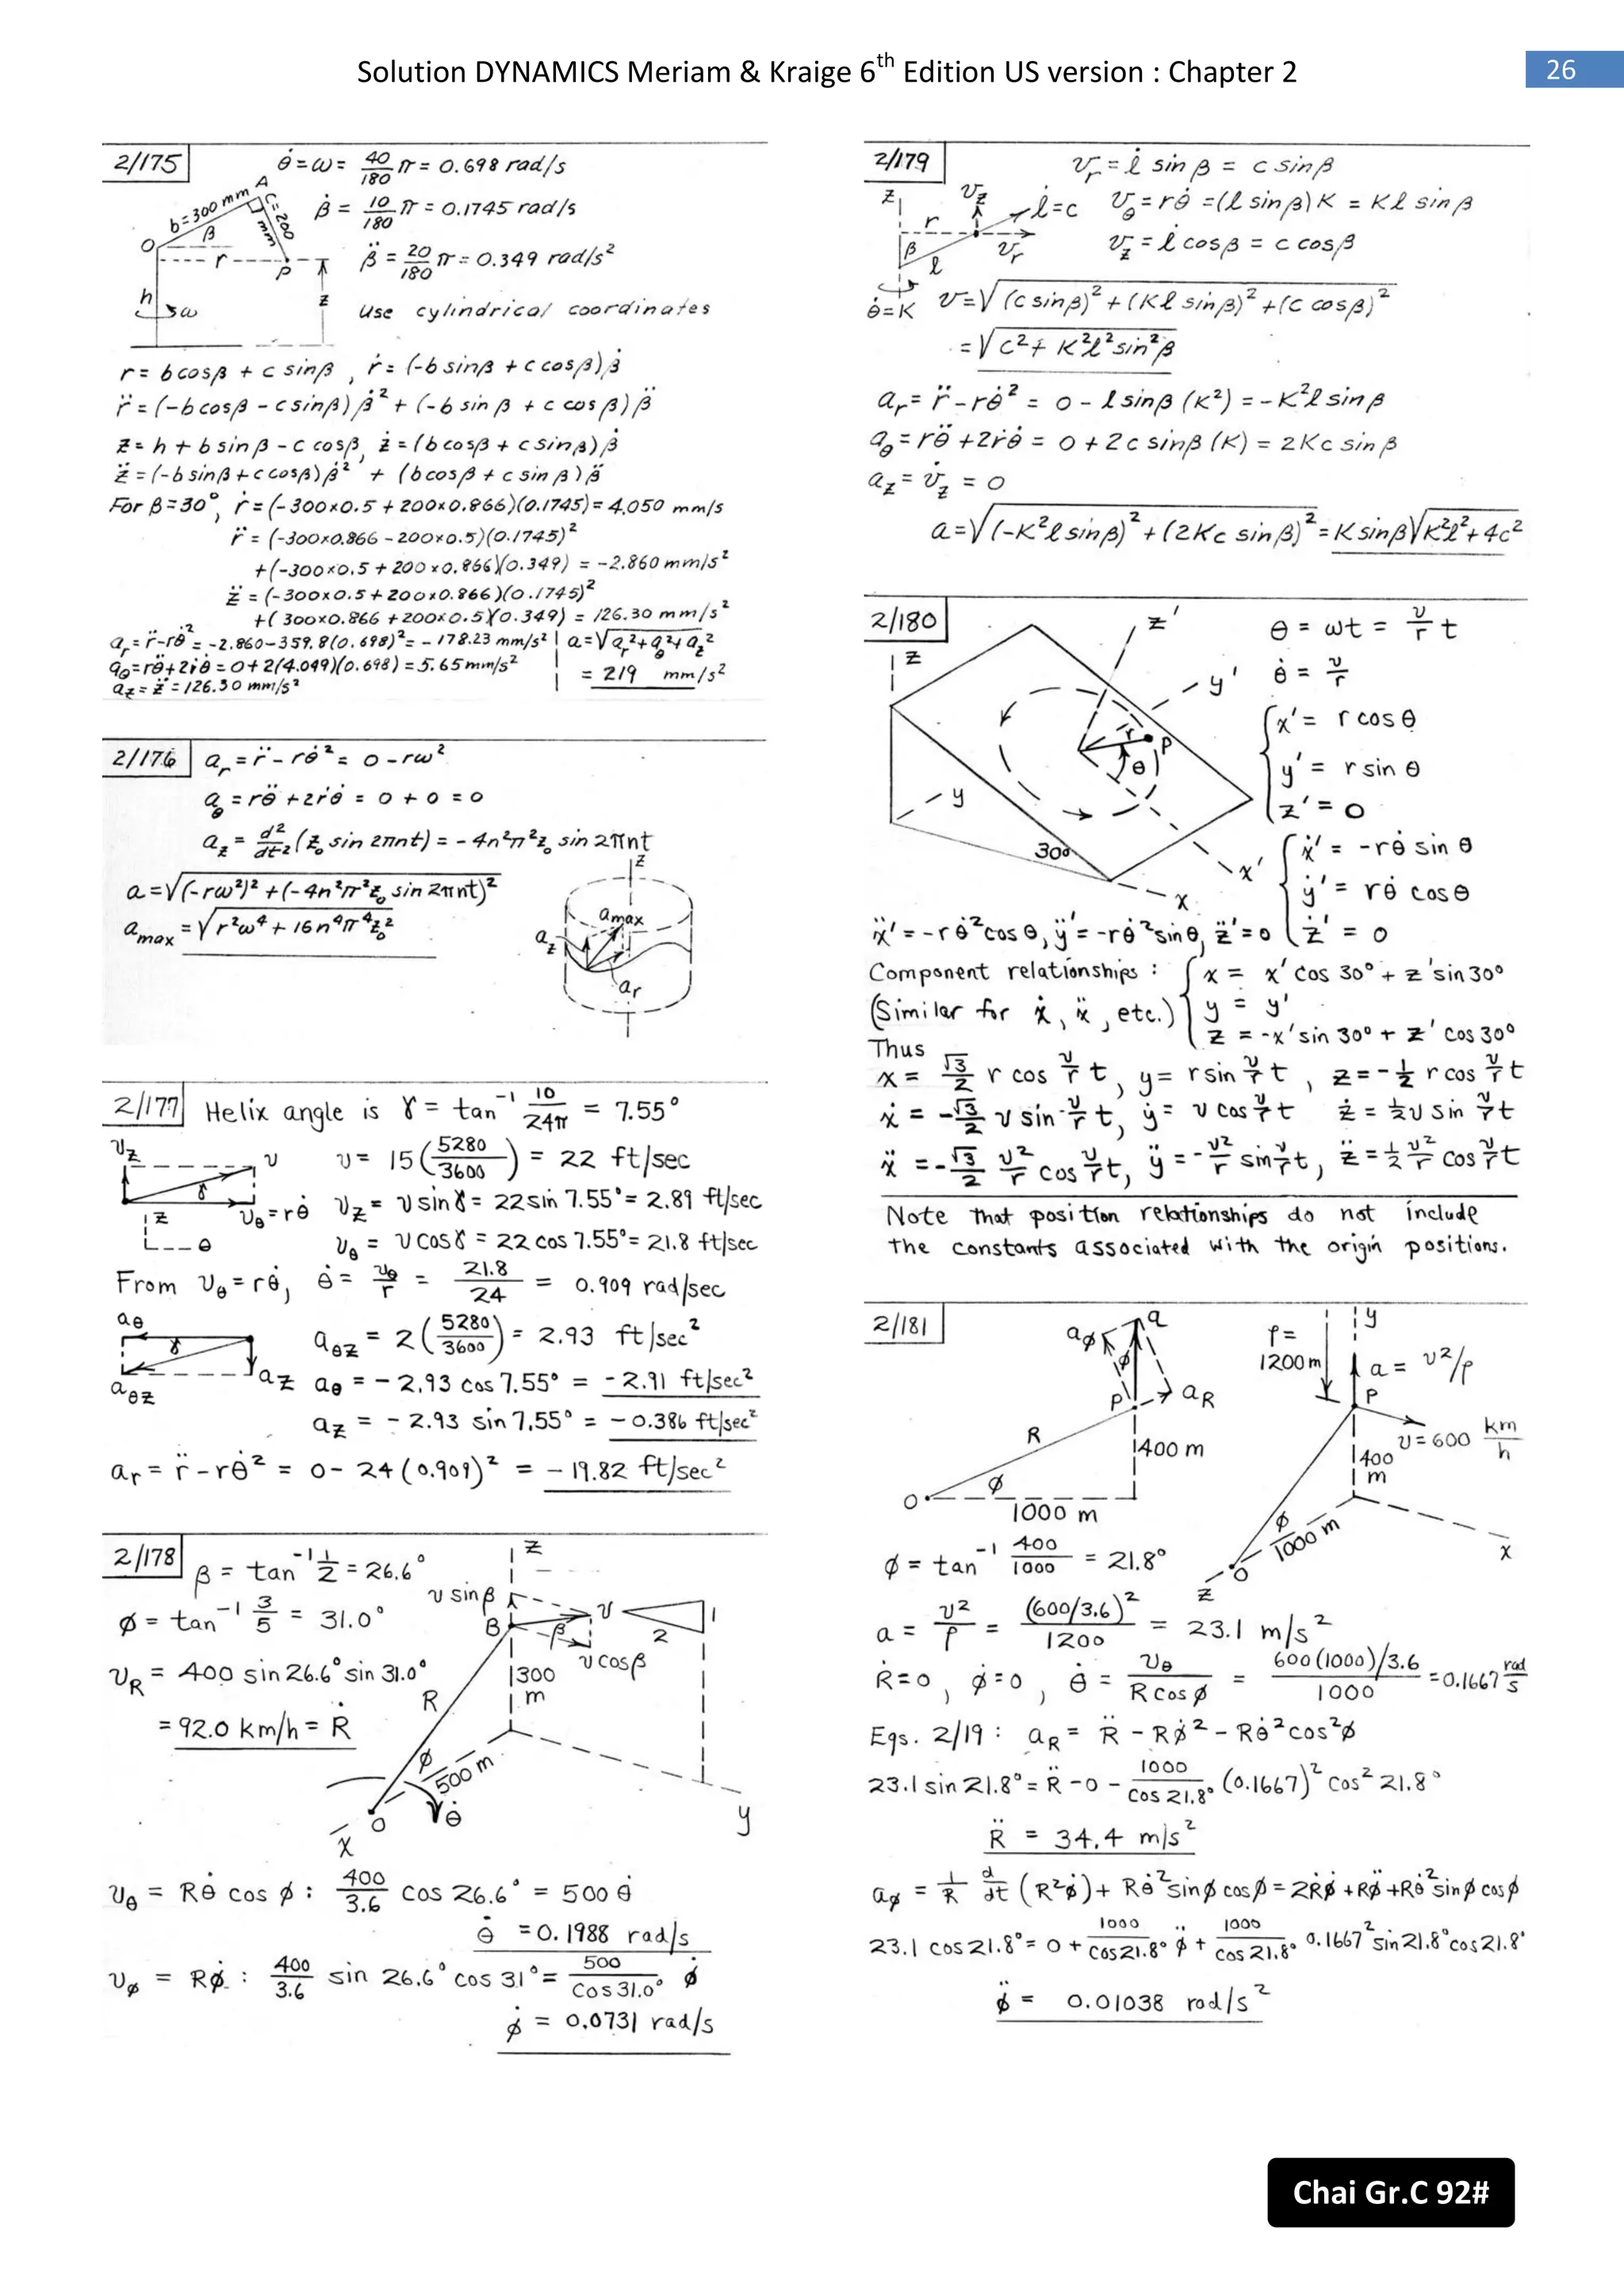 Solution DYNAMICS Meriam & Kraige 6th Edition US version : Chapter 2
26
2/175
θ̇ = ω = 40/180 π = 0.698 rad/s
β̇ = 10/180 π = 0.1745 rad/s
β̈ = 20/180 π = 0.349 rad/s²
b=300 mm
A
c=200 mm
β
O
r
P
z
h
ω
Use cylindrical coordinates
r = b cosβ + c sinβ , ṙ = (-b sinβ + c cosβ) β̇
r̈ = (-b cosβ - c sinβ) β̇² + (-b sin β + c cos β) β̈
z = h + b sin β - c cosβ, ż = (b cosβ + c sinβ) β̇
z̈ = (-b sinβ + c cosβ) β̇² + (b cosβ + c sin β) β̈
For β=30°, ṙ = (-300×0.5 + 200×0.866)(0.1745) = 4.050 mm/s
r̈ = (-300×0.866 - 200×0.5)(0.1745)²
+(-300×0.5 + 200×0.866)(0.349) = -2.860 mm/s²
z̈ = (-300×0.5 + 200×0.866)(0.1745)²
+( 300×0.866 + 200×0.5)(0.349) = 126.30 mm/s²
a_r = r̈ - rθ̇² = -2.860 - 359.8(0.698)² = - 178.23 mm/s² | a = √(a_r² + a_θ² + a_z²)
a_θ = rθ̈ + 2ṙθ̇ = 0 + 2(4.049)(0.698) = 5.65 mm/s² | = 219 mm/s²
a_z = z̈ = 126.30 mm/s²
2/176
a_r = r̈ - rθ̇² = 0 - rω²
a_θ = rθ̈ + 2ṙθ̇ = 0 + 0 = 0
a_z = d²/dt² (z₀ sin 2πnt) = - 4n²π²z₀ sin 2πnt
a = √((-rω²)² + (-4n²π²z₀ sin 2πnt)²)
a_max = √(r²ω⁴ + 16n⁴π⁴z₀²)
z
a_max
a_z
a_r
2/177
Helix angle is γ = tan⁻¹ 10/24π = 7.55°
v_z
v
γ
v_θ = rθ̇
z
θ
v = 15(5280/3600) = 22 ft/sec
v_z = v sin γ = 22 sin 7.55° = 2.89 ft/sec
v_θ = v cos γ = 22 cos 7.55° = 21.8 ft/sec
From v_θ = rθ̇, θ̇ = v_θ/r = 21.8/24 = 0.909 rad/sec
a_θ
γ
a_z
a_θz
a_θz = 2(5280/3600) = 2.93 ft/sec²
a_θ = - 2.93 cos 7.55° = - 2.91 ft/sec²
a_z = - 2.93 sin 7.55° = - 0.386 ft/sec²
a_r = r̈ - rθ̇² = 0 - 24 (0.909)² = - 19.82 ft/sec²
2/178
β = tan⁻¹ 1/2 = 26.6°
φ = tan⁻¹ 3/5 = 31.0°
v_R = 400 sin 26.6° sin 31.0°
= 92.0 km/h = Ṙ
z
v sin β
B
v
1
2
β
v cos β
300 m
R
φ
500 m
O
θ̇
x
y
v_θ = Rθ̇ cos φ : 400/3.6 cos 26.6° = 500 θ̇
θ̇ = 0.1988 rad/s
v_φ = Rφ̇ : 400/3.6 sin 26.6° cos 31° = 500/cos 31.0° φ̇
φ̇ = 0.0731 rad/s
2/179
v_r = l̇ sin β = c sin β
v_θ = rθ̇ = (l sin β) K = Kl sin β
v_z = l̇ cos β = c cos β
z
v_z
l̇ = c
r
β
l
v_r
θ̇ = K
v = √((c sin β)² + (Kl sin β)² + (c cos β)²)
= √(c² + K²l² sin²β)
a_r = r̈ - rθ̇² = 0 - l sin β (K²) = - K²l sin β
a_θ = rθ̈ + 2ṙθ̇ = 0 + 2c sin β (K) = 2Kc sin β
a_z = v̇_z = 0
a = √((-K²l sin β)² + (2Kc sin β)²) = K sin β √(K²l² + 4c²)
2/180
θ = ωt = v/r t
θ̇ = v/r
z'
z
y'
r
P
θ
y
30°
x'
x
x' = r cos θ
y' = r sin θ
z' = 0
ẋ' = -rθ̇ sin θ
ẏ' = rθ̇ cos θ
ż' = 0
ẍ' = -rθ̇² cos θ, ÿ' = -rθ̇² sin θ, z̈' = 0
Component relationships : x = x' cos 30° + z' sin 30°
(Similar for ẋ, ẍ, etc.) y = y'
z = -x' sin 30° + z' cos 30°
Thus
x = √3/2 r cos v/r t , y = r sin v/r t , z = - 1/2 r cos v/r t
ẋ = -√3/2 v sin v/r t, ẏ = v cos v/r t ż = 1/2 v sin v/r t
ẍ = -√3/2 v²/r cos v/r t, ÿ = - v²/r sin v/r t, z̈ = 1/2 v²/r cos v/r t
Note that position relationships do not include
the constants associated with the origin positions.
2/181
a_φ
a
φ
P
a_R
R
400 m
φ
O
1000 m
ρ = 1200 m
y
a = v²/ρ
P
v = 600 km/h
400 m
φ
1000 m
O
z
x
φ = tan⁻¹ 400/1000 = 21.8°
a = v²/ρ = (600/3.6)²/1200 = 23.1 m/s²
Ṙ = 0 , φ̇ = 0 , θ̇ = v_θ/(R cos φ) = 600(1000)/3.6 / 1000 = 0.1667 rad/s
Eqs. 2/19 : a_R = R̈ - Rφ̇² - Rθ̇² cos²φ
23.1 sin 21.8° = R̈ - 0 - 1000/cos 21.8° (0.1667)² cos² 21.8°
R̈ = 34.4 m/s²
a_φ = 1/R d/dt (R²φ̇) + Rθ̇² sin φ cos φ = 2Ṙφ̇ + Rφ̈ + Rθ̇² sin φ cos φ
23.1 cos 21.8° = 0 + 1000/cos 21.8° φ̈ + 1000/cos 21.8° 0.1667² sin 21.8° cos 21.8°
φ̈ = 0.01038 rad/s²
Chai Gr.C 92#